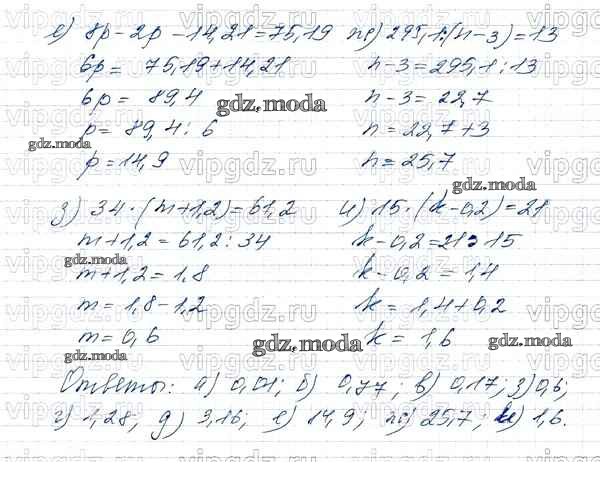 е) 8р - 2р - 14,21 = 75,19
6р = 75,19 + 14,21
6р = 89,4
р = 89,4 : 6
р = 14,9
ж) 295,1 : (n - 3) = 13
n - 3 = 295,1 : 13
n - 3 = 22,7
n = 22,7 + 3
n = 25,7
з) 34 · (m + 1,2) = 61,2
m + 1,2 = 61,2 : 34
m + 1,2 = 1,8
m = 1,8 - 1,2
m = 0,6
и) 15 · (k - 0,2) = 21
k - 0,2 = 21 : 15
k - 0,2 = 1,4
k = 1,4 + 0,2
k = 1,6
Ответы: а) 0,01; б) 0,77; в) 0,17; з) 0,6;
г) 1,28; д) 3,16; е) 14,9; ж) 25,7; и) 1,6.
gdz.moda
gdz.moda
gdz.moda
gdz.moda
gdz.moda
gdz.moda
gdz.moda
vipgdz.ru